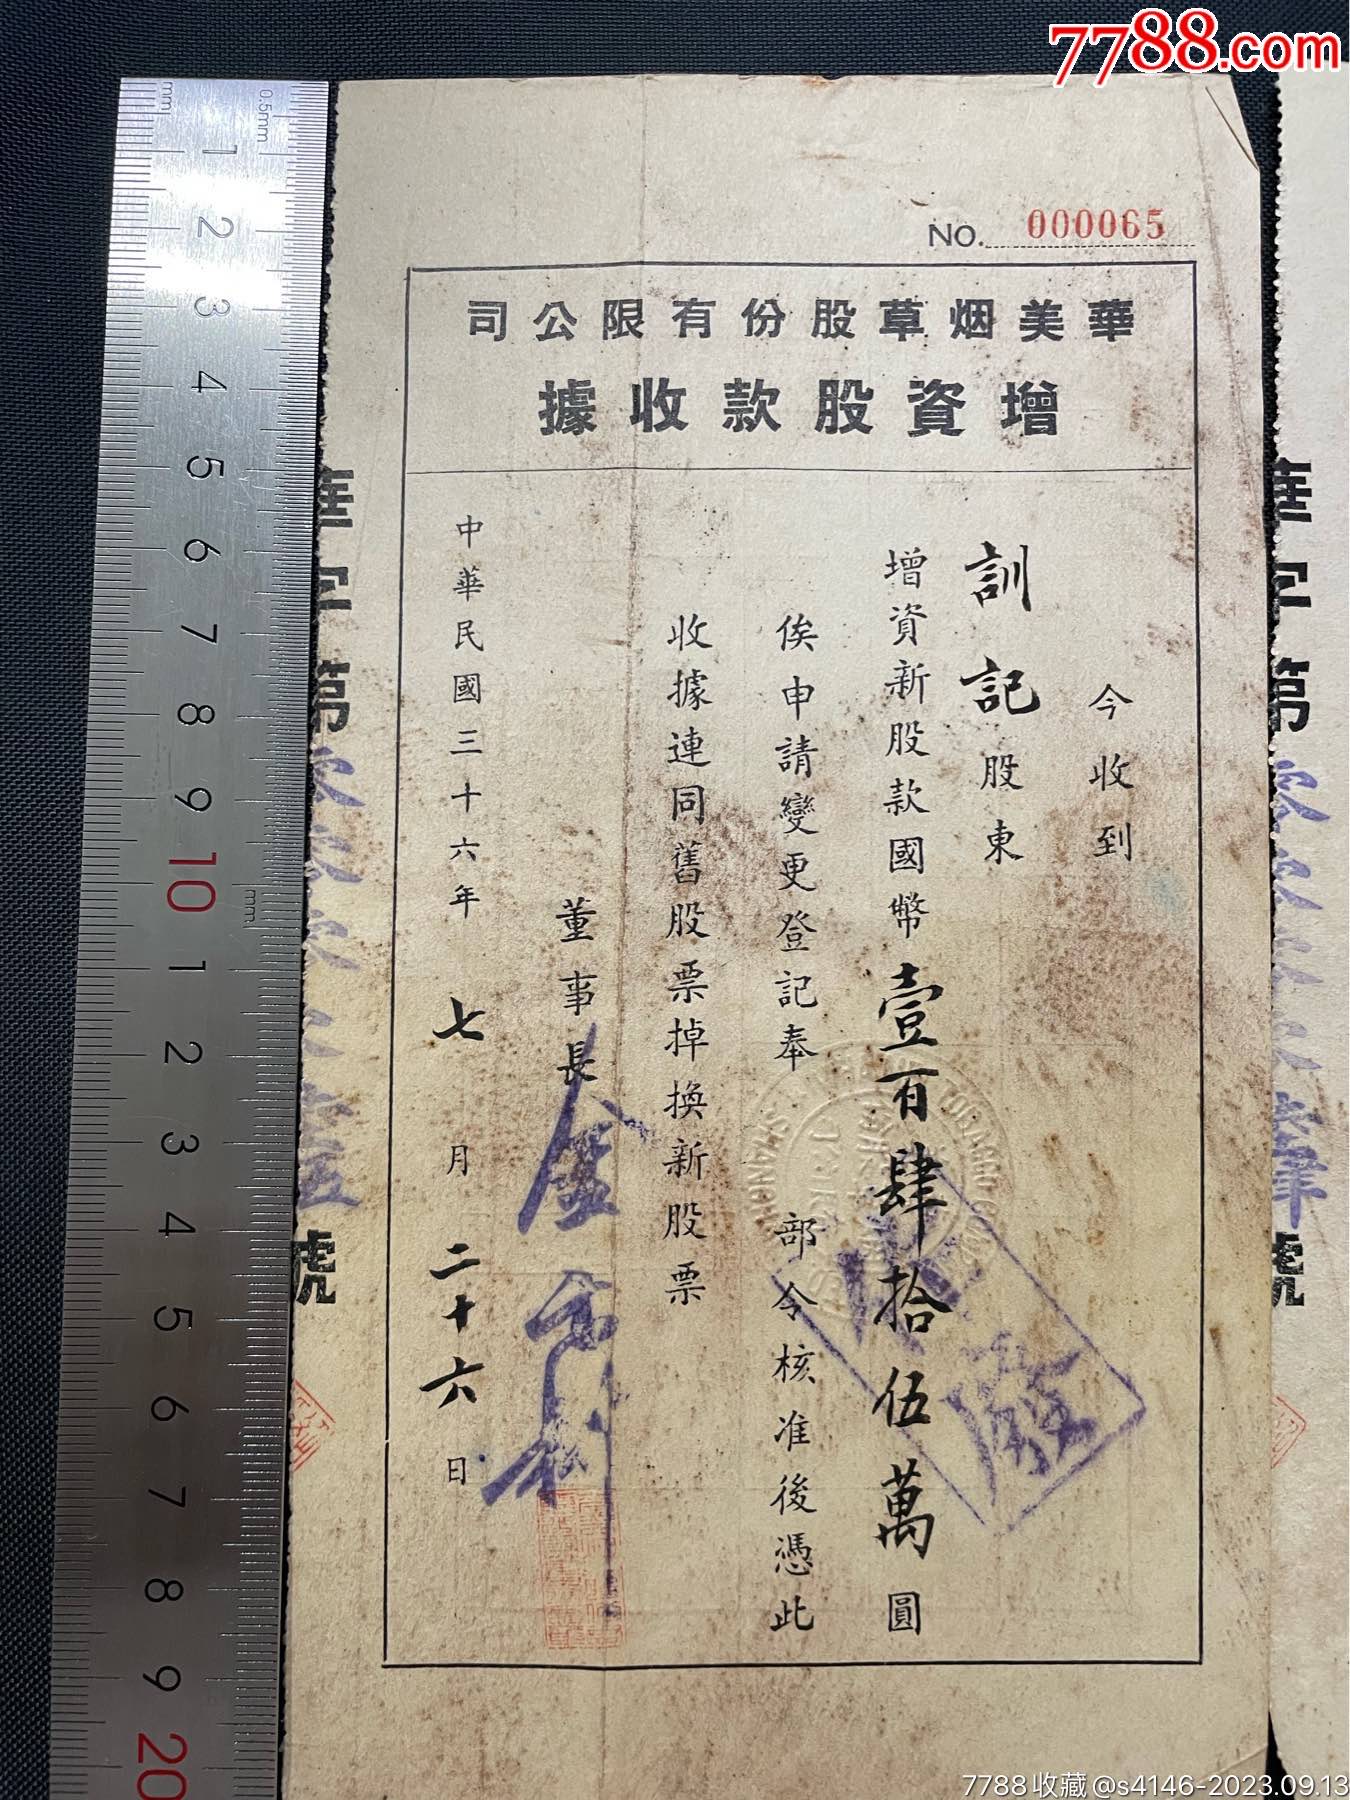 7788.com
NO. 000065
華美烟草股份有限公司
增資股款收據
今收到
訓記股東
增資新股款國幣壹百肆拾伍萬圓
俟申請變更登記奉 部令核准後憑此
收據連同舊股票掉換新股票
董事長
中華民國三十六年七月二十六日
華字第
號
華字第
號
mm
0.5mm
1
2
3
4
5
6
7
8
9
10
mm
1
2
3
4
5
6
7
8
9
20
7788收藏@s4146-2023.09.13